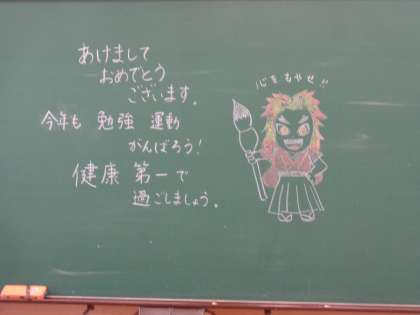 あけまして
おめでとう
ございます。
今年も 勉強 運動
がんばろう!
健康 第一で
過ごしましょう。
心をもやせ!!